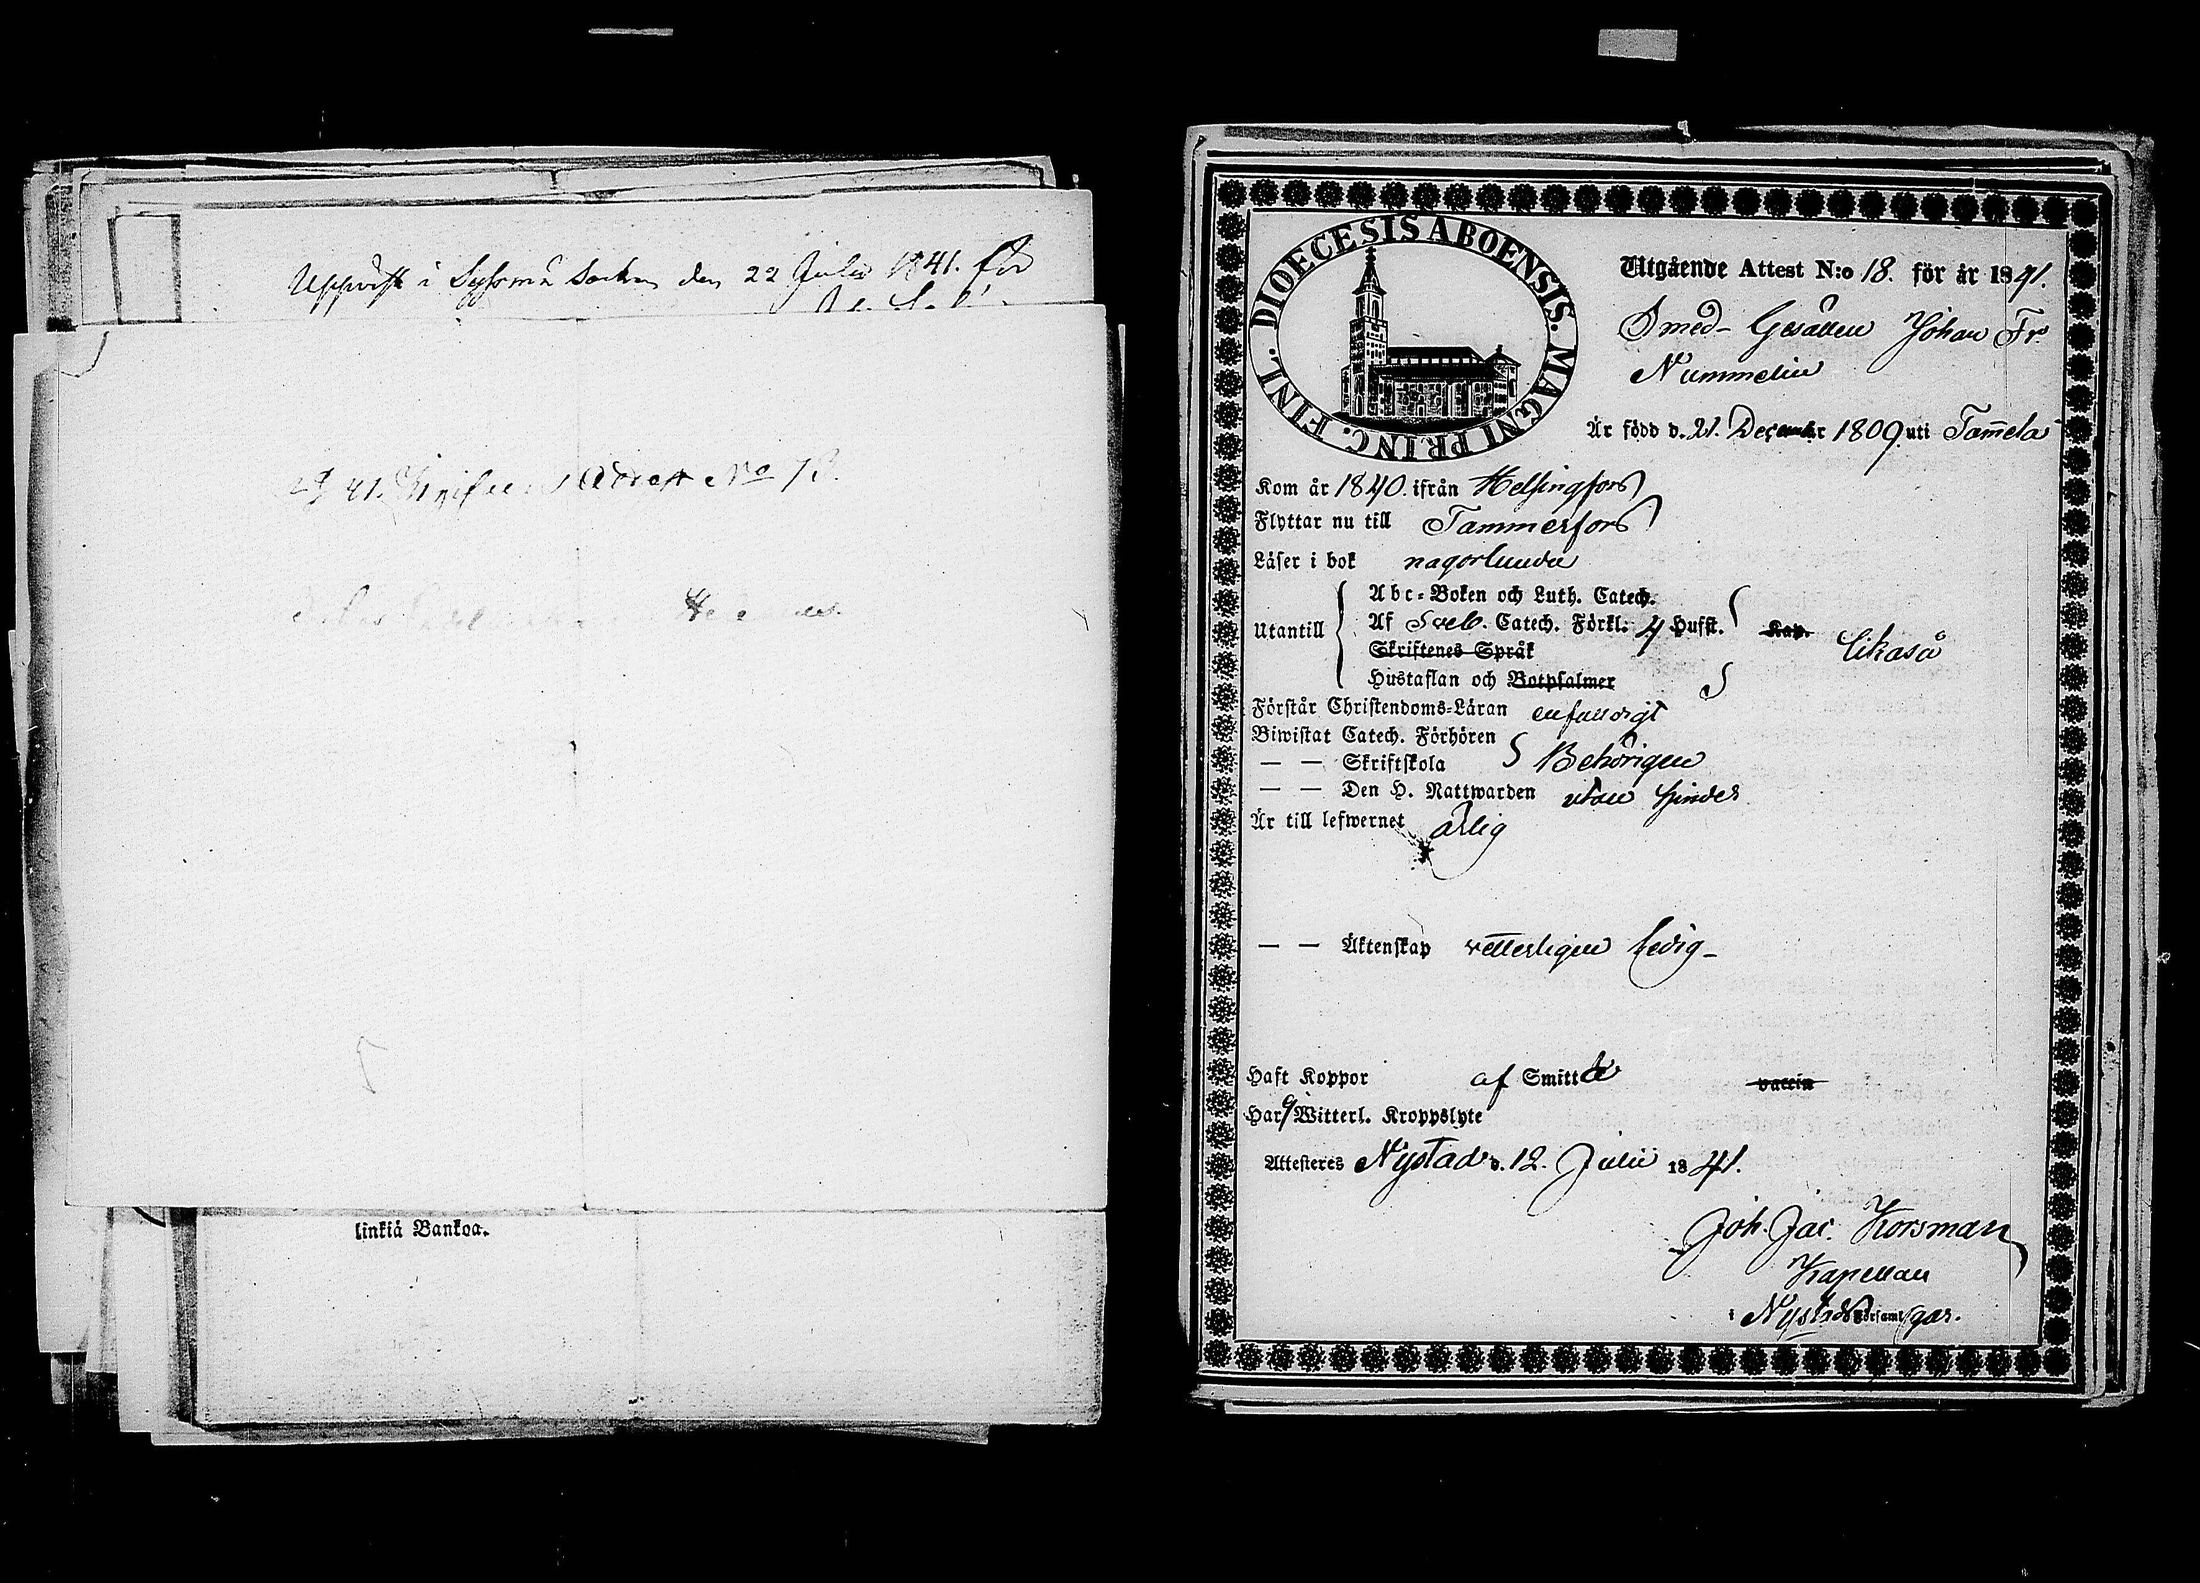 Uppvist i Sysmä Socken den 22 Julii 1841. för
1841. Attest No 73.
linkiä Bankoa.
DIOECESIS ABOENSIS. MAGNI PRINC. FINL.
Utgående Attest N:o 18. för år 1841.
Smed-Gesällen Johan Fr.
Nummelin
Är född d. 21. December 1809. uti Tammela
Kom år 1840. ifrån Helsingfors
Flyttar nu till Tammerfors
Läser i bok någorlunda
Abc-Boken och Luth. Catech.
Utantill Af Sveb. Catech. Förkl. 4 Hufst. Kap. likaså
Skriftenes Språk
Hustaflan och Botpsalmer
Förstår Christendoms-Läran enfaldigt
Biwistat Catech. Förhören
— — Skriftskola Behörigen
— — Den H. Nattwarden utan hinder
Är till lefwernet ärlig
— — Äktenskap vetterligen ledig-
Haft Koppor af Smitta vaccin
Har Witterl. Kroppslyte
Attesteres Nystad d. 12. Julii 1841.
Joh. Jac. Korsman
Kapellan
i Nystads Församlgar.